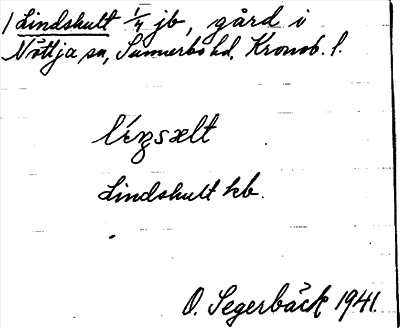 1 Lindshult 1/4 jb, gård i
Nöttja sn, Sunnerbo hd, Kronob. l.
Lindshult kb.
O. Segerbäck 1941.